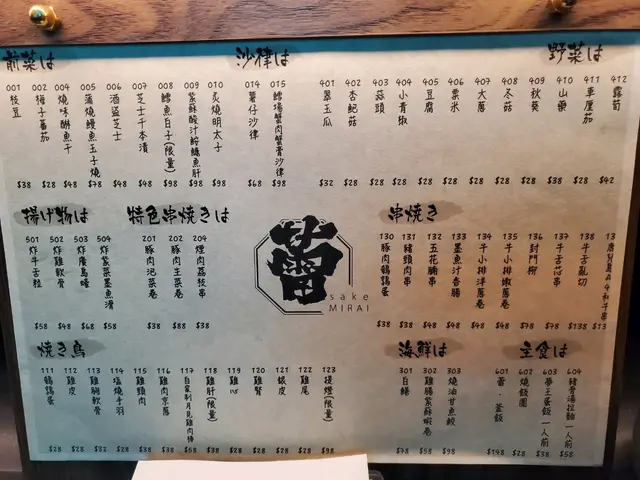 前菜は
001 枝豆 $38
002 梅子番茄 $28
004 燒味醂魚干 $48
005 蒲燒鰻魚玉子燒 $78
006 酒盜芝士 $48
007 芝士千本漬 $48
008 鱈魚白子(限量) $98
009 紫蘇酸汁鮟鱇魚肝 $98
010 炙燒明太子 $98
沙律は
014 薯仔沙律 $68
015 鱈場蟹肉蟹膏沙律 $98
野菜は
401 翠玉瓜 $32
402 杏鮑菇 $28
403 蒜頭 $28
404 小青椒 $28
405 豆腐 $28
406 粟米 $28
407 大蔥 $28
408 冬菇 $28
409 秋葵 $28
410 山藥 $38
411 車厘茄 $28
412 露筍 $42
揚げ物は
501 炸牛舌粒 $58
502 炸雞軟骨 $48
503 炸廣島蠔 $68
504 炸紫菜墨魚滑 $58
特色串焼きは
201 豚肉泡菜卷 $38
202 豚肉生菜卷 $88
204 煙肉荔枝串 $38
蕾
sake
MIRAI
串焼き
130 豚肉鵪鶉蛋 $38
131 豬頸肉串 $38
132 五花腩串 $48
133 墨魚汁香腸 $48
134 牛小排洋蔥卷 $48
135 牛小排椒蔥卷 $48
136 封門柳 $48
137 牛舌芯串 $48
138 牛舌亂切 $138
13 $13
焼き鳥
111 鵪鶉蛋 $28
112 雞皮 $28
113 雞胸軟骨 $32
114 塩燒手羽 $28
115 雞頸肉 $28
116 雞肉京蔥 $28
117 自家制月見雞肉棒
118 雞肝(限量)
119 雞心
120 雞腎 $28
121 銀皮 $28
122 雞尾 $28
123 提燈(限量) $98
海鮮は
301 白鱔 $78
302 雞腸紫蘇蝦卷 $58
303 燒油甘魚鮫 $98
主食は
601 蕾・釜飯 $148
602 燒飯團 $28
603 夢王蛋飯 一人前 $38
604 豬骨湯拉麵 一人前 $58